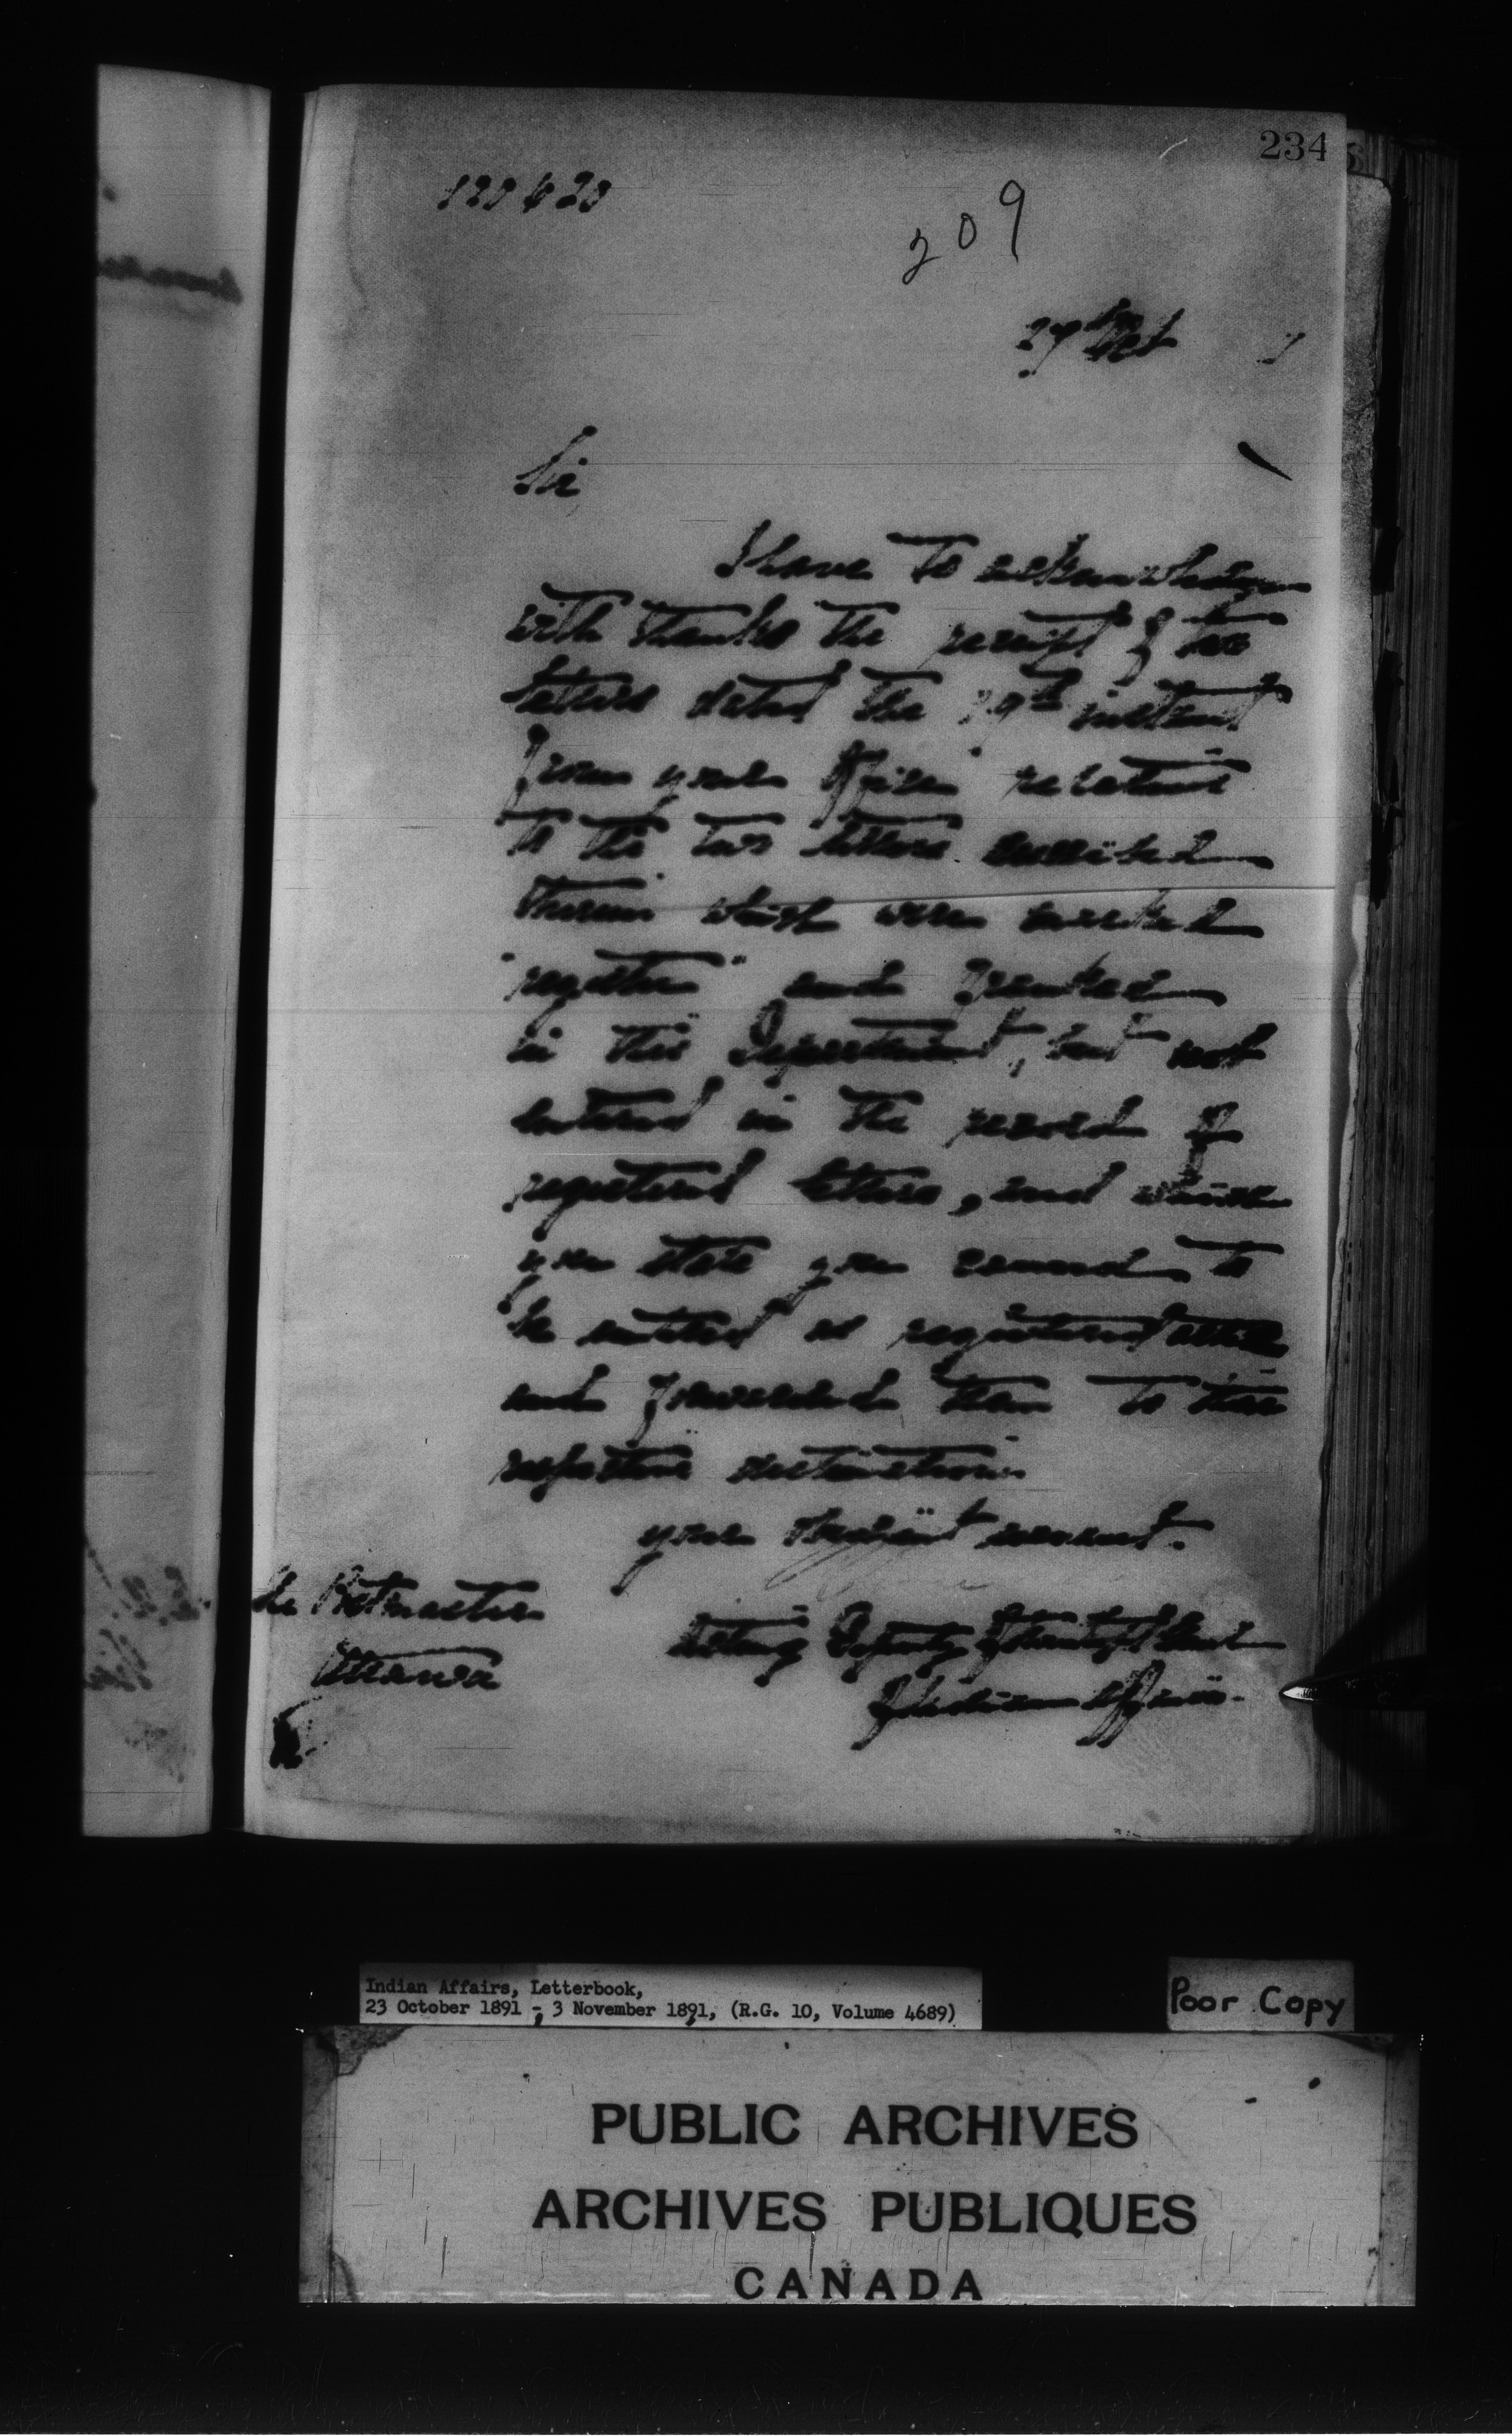 234
209
27th Oct
Sir,
I have to acknowledge
with thanks the receipt of two
letters dated the instant
from your Office relative
to the two letters described
therein which were marked
"register" and franked
in this Department, but not
entered in the record of
registered letters, and which
you state you caused to
be entered as registered
and forwarded them to their
respective destinations
your obedient servant.
The Postmaster
Ottawa
Acting Deputy of Supt. Genl
of Indian Affairs.
Indian Affairs, Letterbook,
23 October 1891 - 3 November 1891, (R.G. 10, Volume 4689)
Poor Copy
PUBLIC ARCHIVES
ARCHIVES PUBLIQUES
CANADA